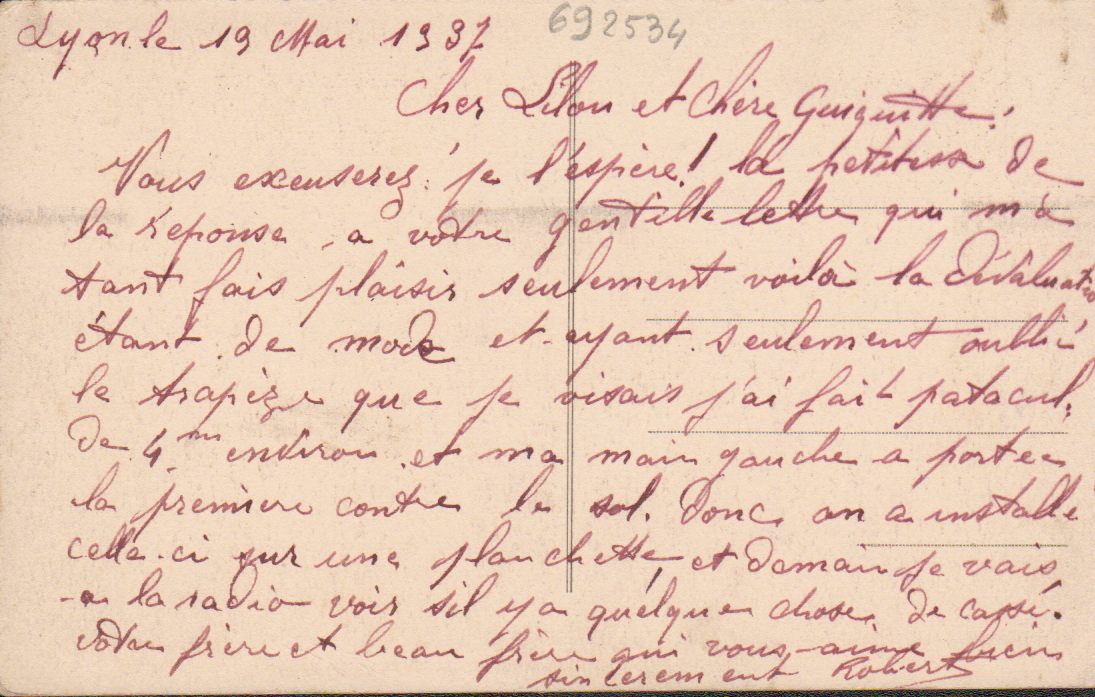 692534
Lyon le 19 Mai 1937
Cher Lilou et chère Guiguitte.
Vous excuserez je l'espère! la petitesse de
la réponse, a votre gentille lettre qui m'a
tant fais plaisir seulement voilà la dévaluatio
étant de mode et ayant seulement oublié
le trapèze que je visais j'ai fait patacul,
de 4m environ et ma main gauche a portée
la premiere contre le sol. Donc on a installé
celle-ci sur une planchette, et demain je vais
a la radio voir s'il y a quelque chose de cassé.
votre frère et beau frère qui vous aime bien
sincerement Robert